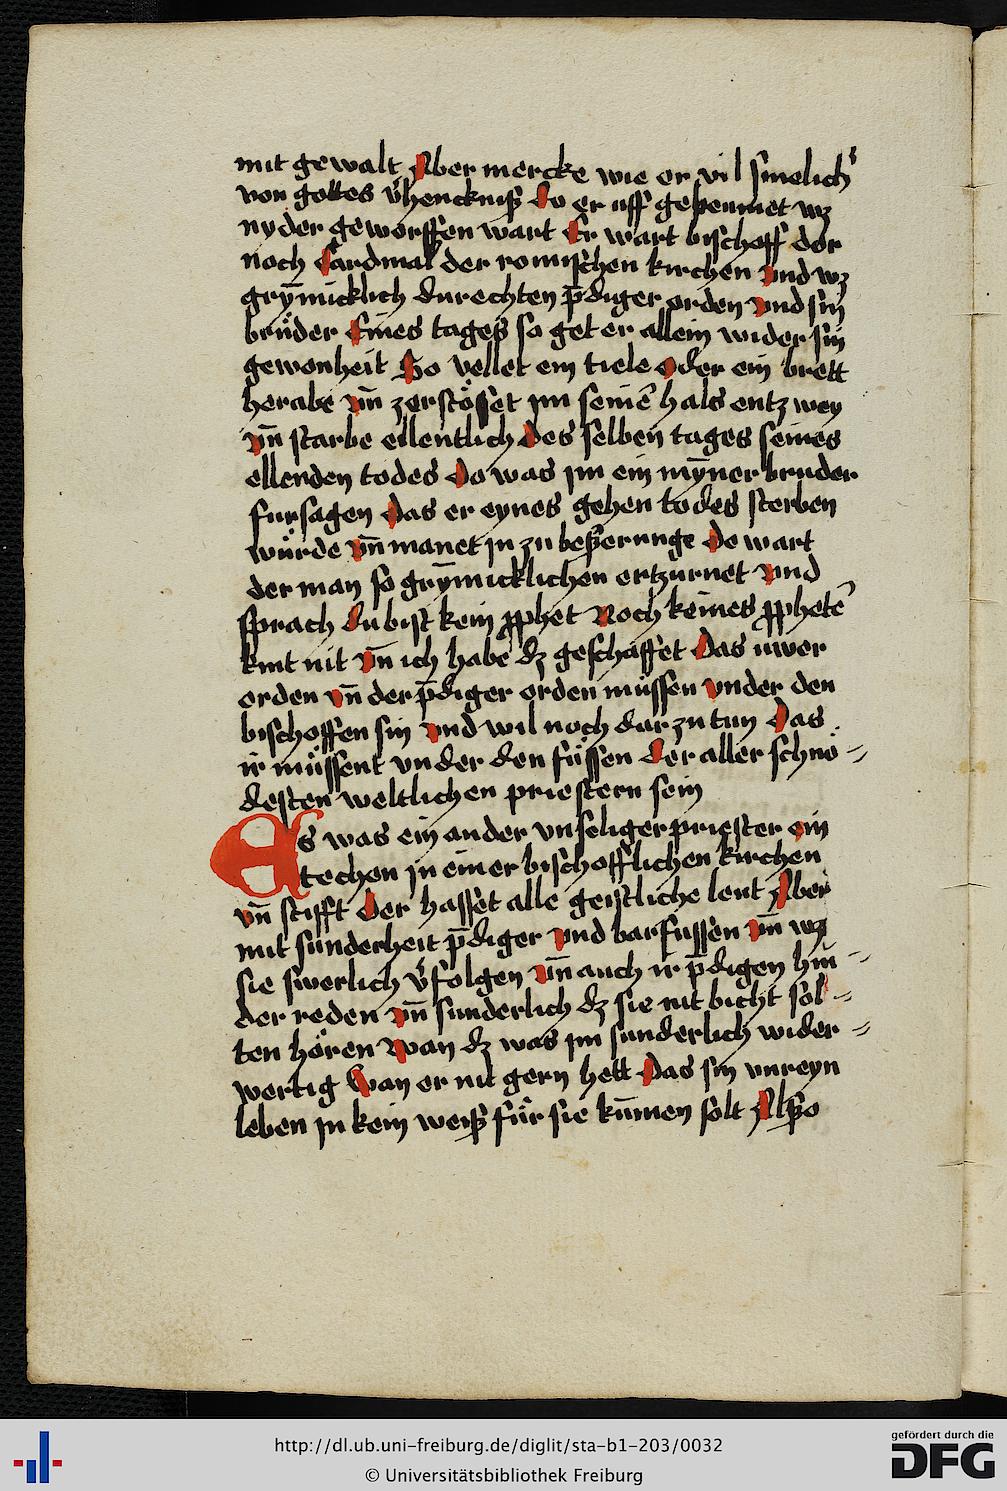 mit gewalt Aber mercke wie er vil smelich᷑
von gottes v᷑henckniß Do er uff gebeumet wz
nyder geworffen wart Er wart bischoff dor
noch Cardinal der romischen kirchen vnd wz
gry̅micklich durechten p̅diger orden vnd sin
brüder Eines tages so get er allein wider sin
gewonheit So vellet ein tiele oder ein brett
herabe vn̅ zerstösset im seine̅ hals entzwey
vn̅ starbe ellentlich Des selben tages seines
ellenden todes Do was im ein my̅ner bruder
fursagen Das er eynes gehen todes sterben
würde vn̅ manet in zu beßerunge Do wart
der man so gry̅micklichen ertzurnet vnd
sprach du bist kein ꝓphet Noch keines ꝓphete̅
kint nit vn̅ ich habe dz geschaffet Das uwer
orden vn̅ der p̅diger orden müssen vnder den
bischoffen sin vnd wil noch dar zu tun Das
ir müssent vnder den füssen der aller schnö=
desten weltlichen priestern sein
Es was ein ander vnseliger priester ein
techen in einer bischofflichen kirchen
vn̅ stifft Der hasset alle geistliche leut Aber
mit sunderheit p̅diger vnd barfussen vn̅ wz
sie swerlich v᷑folgen vn̅ auch ir p̅digen hin=
der reden vn̅ sunderlich dz sie nit bicht sol=
ten hören Wan dz was im sunderlich wider=
wertig Wan er nit gern hett Das sin vnreyn
leben in kein weiß für sie ku̅men solt Alßo
http://dl.ub.uni-freiburg.de/diglit/sta-b1-203/0032
© Universitätsbibliothek Freiburg
gefördert durch die
DFG